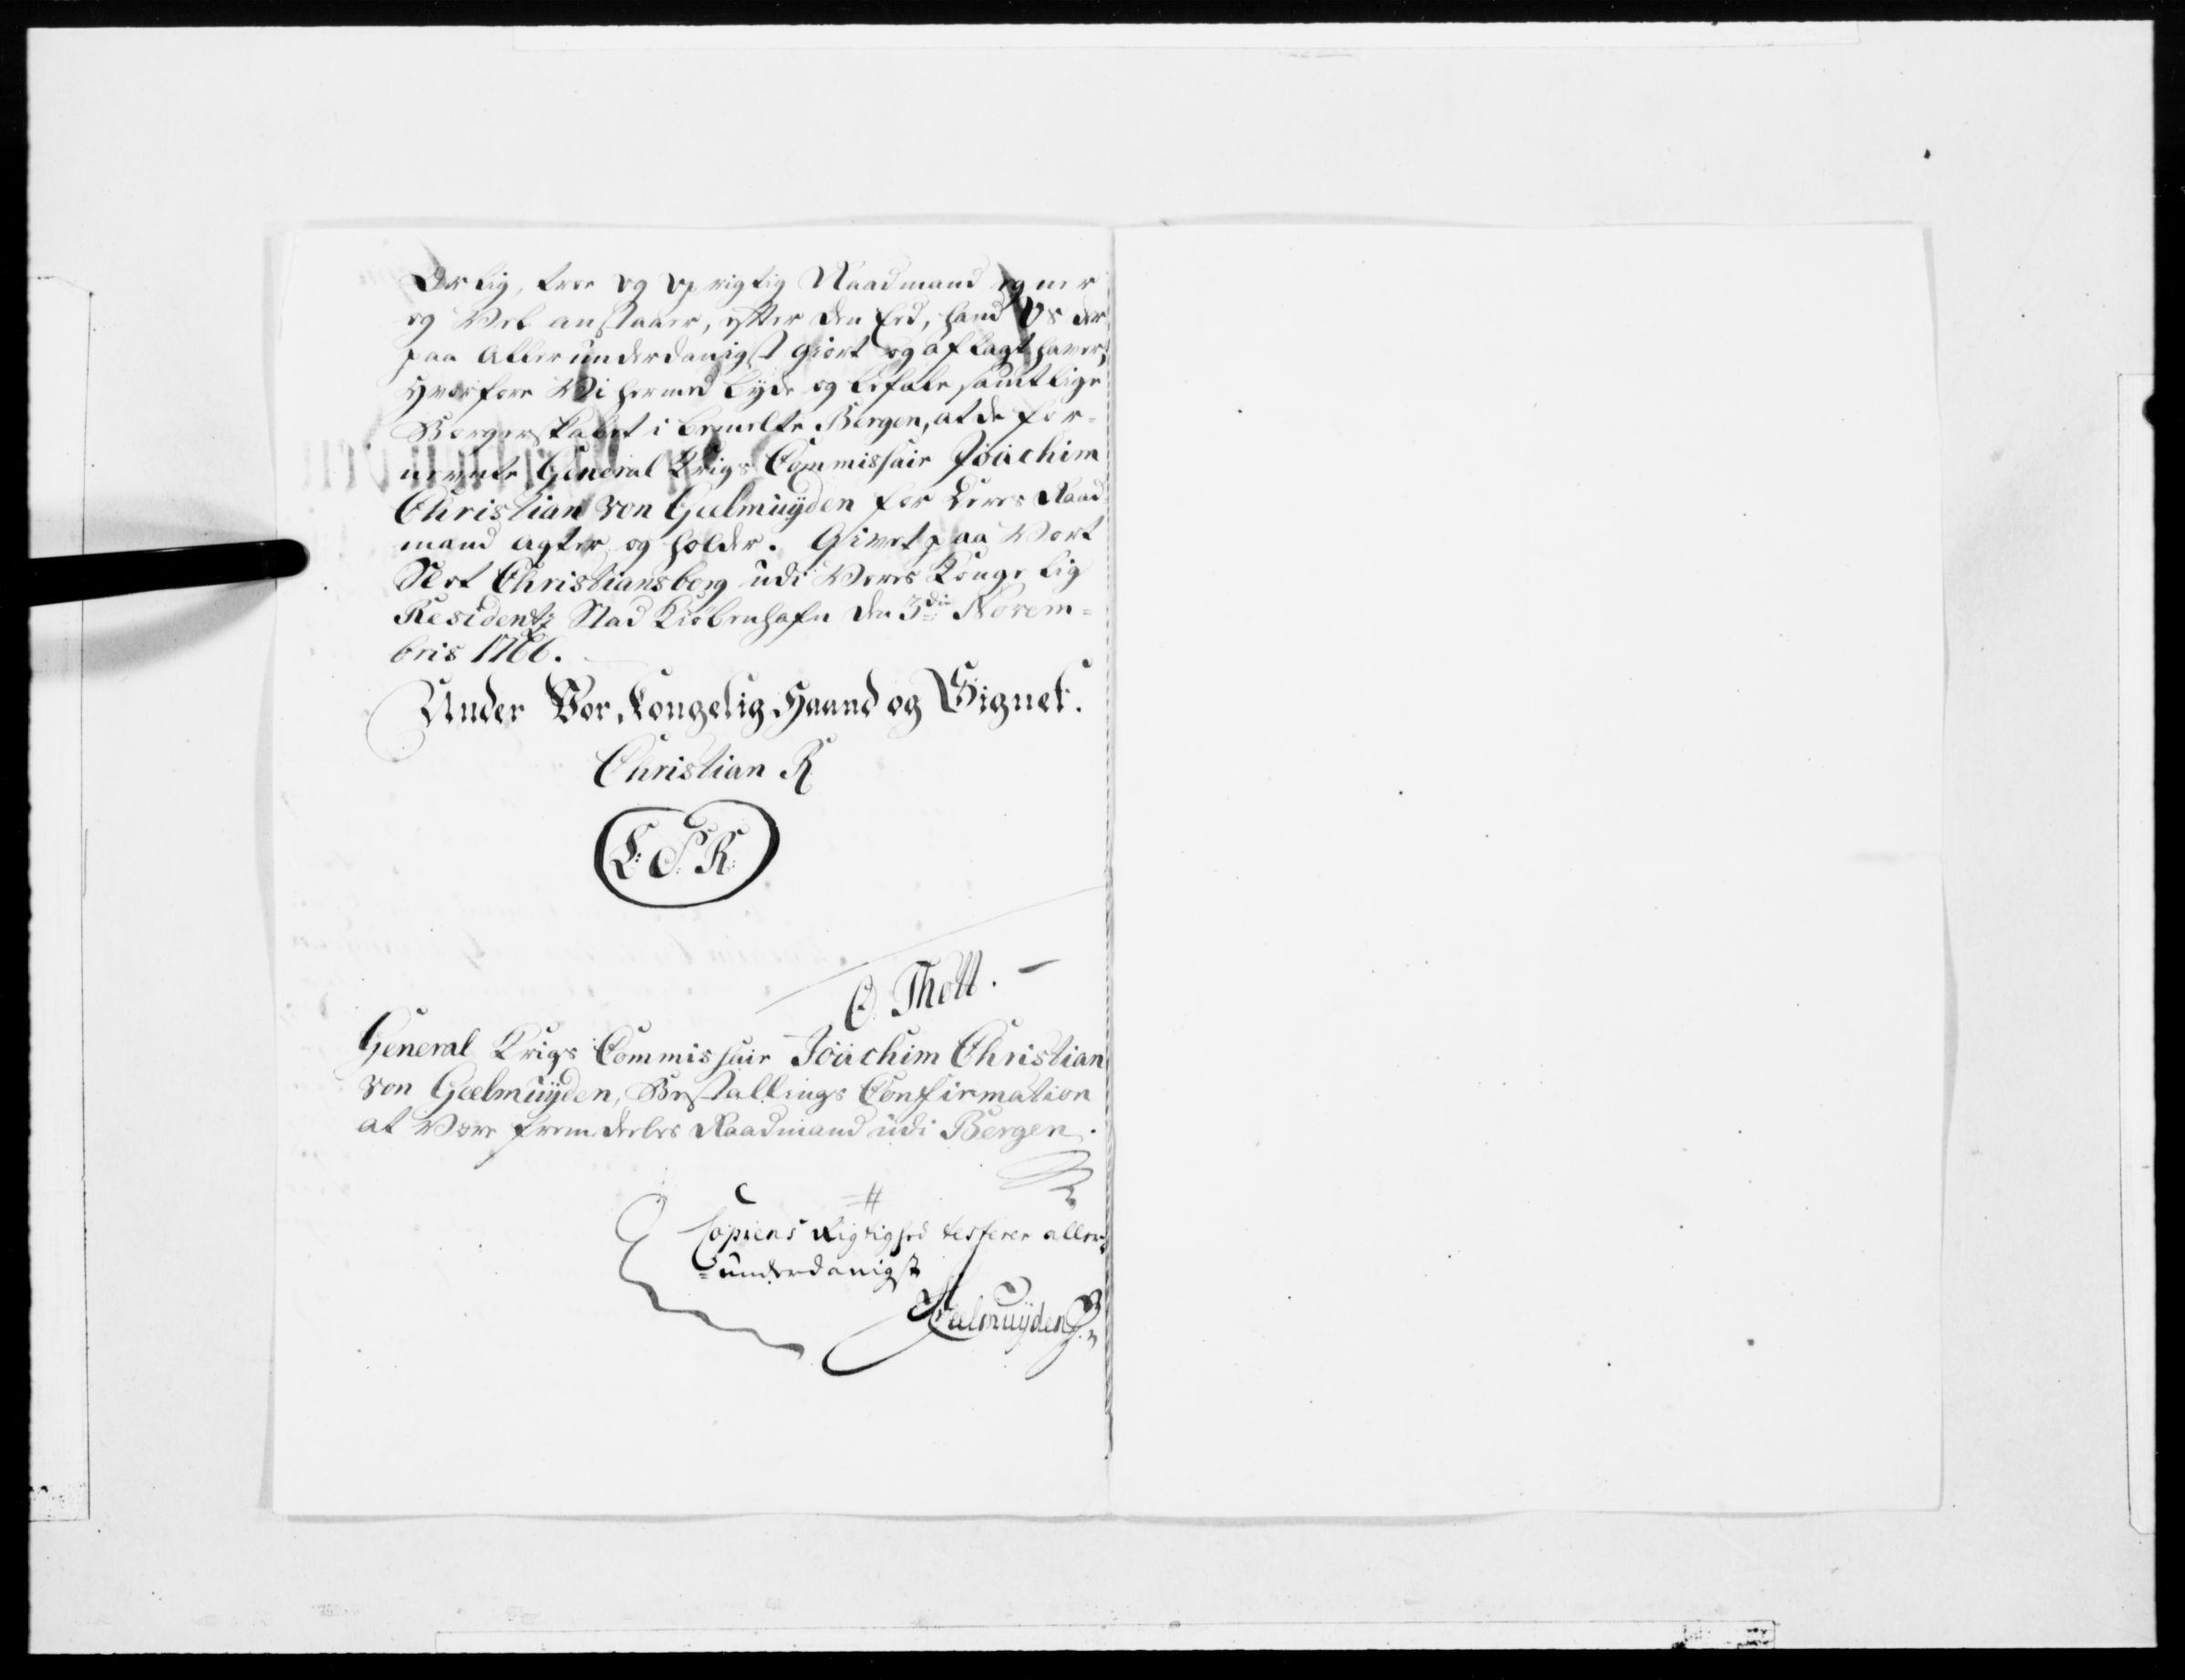 Ærlig, troe og oprigtig Raadmand egner
og Vel anstaaer, efter den Eed, hand Os der
paa Allerunderdanigst giort og aflagt haver,
Hvorfore Vi hermed byde og befale samtlige
Borgerskabet i bemelte Bergen, at de for-
nevnte General Krigs Commissair Joachim
Christian von Geelmuÿden for deres Raad
mand agter og holder. Givet paa Vort
Slot Christiansborg udi Vores Kongelig
Residentz Stad Kiöbenhafn den 3die Novem=
bris 1766.
Under Vor Kongelig Haand og Signet.
Christian R
L: S: R:
O. Thott. -
General Krigs Commissair Joachim Christian
von Geelmuÿden, Bestallings Confirmation
at Være fremdeeles Raadmand udi Bergen.
Copiens Rigtighed testerer aller-
=underdanigst
Geelmuÿden